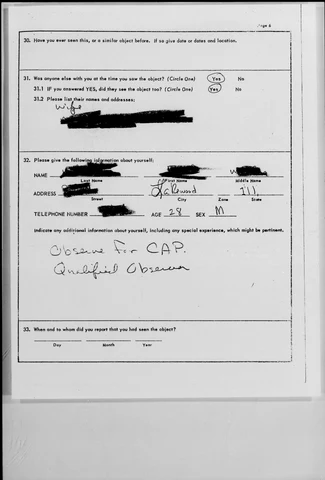 Page 6
30. Have you ever seen this, or a similar object before. If so give date or dates and location.
31. Was anyone else with you at the time you saw the object? (Circle One) Yes No
31.1 IF you answered YES, did they see the object too? (Circle One) Yes No
31.2 Please list their names and addresses:
Wife
32. Please give the following information about yourself:
NAME
Last Name First Name Middle Name
ADDRESS Ill.
Street City Zone State
TELEPHONE NUMBER AGE 28 SEX M
Indicate any additional information about yourself, including any special experience, which might be pertinent.
Observe For CAP.
Qualified Observer
33. When and to whom did you report that you had seen the object?
Day Month Year